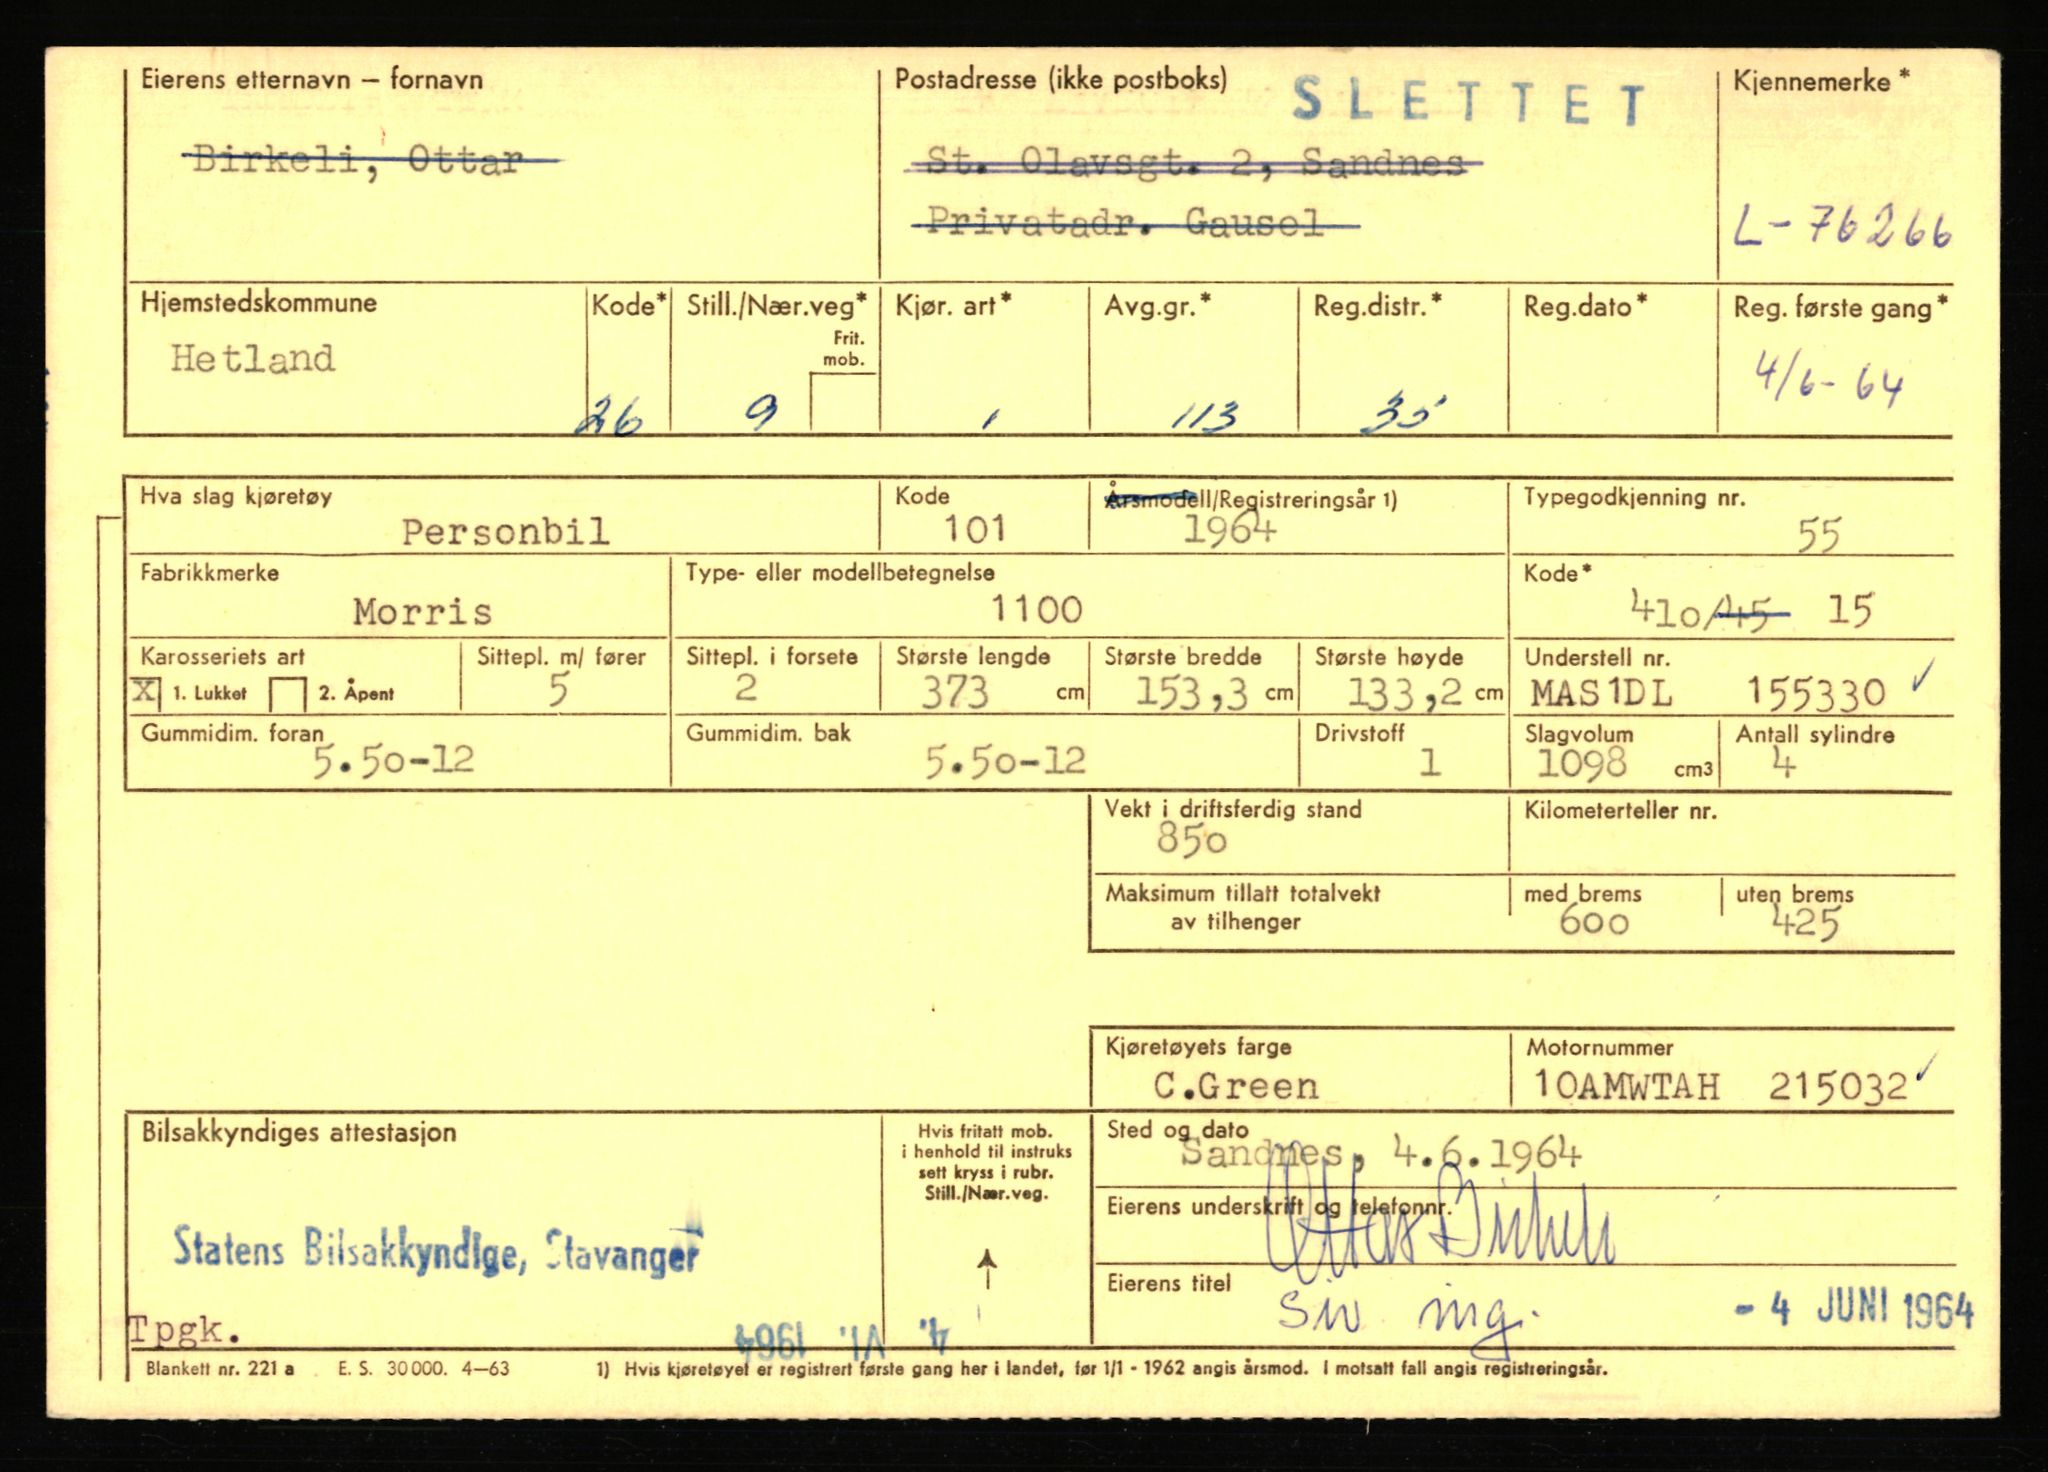 Eierens etternavn — fornavn
Birkeli, Ottar
Postadresse (ikke postboks)
SLETTET
St. Olavsgt. 2, Sandnes
Privatadr. Gausel
Kjennemerke*
L-76266
Hjemstedskommune
Hetland
Kode*
26
Still./Nær.veg*
Frit.
mob.
9
Kjør. art*
1
Avg.gr.*
113
Reg.distr.*
35
Reg.dato*
Reg. første gang*
4/6-64
Hva slag kjøretøy
Personbil
Kode
101
Årsmodell/Registreringsår 1)
1964
Typegodkjenning nr.
55
Fabrikkmerke
Morris
Type- eller modellbetegnelse
1100
Kode*
410/45 15
Karosseriets art
X 1. Lukket 2. Åpent
Sittepl. m/ fører
5
Sittepl. i forsete
2
Største lengde
373 cm
Største bredde
153,3 cm
Største høyde
133,2 cm
Understell nr.
MAS1DL 155330 ✓
Gummidim. foran
5.50-12
Gummidim. bak
5.50-12
Drivstoff
1
Slagvolum
1098 cm3
Antall sylindre
4
Vekt i driftsferdig stand
850
Kilometerteller nr.
Maksimum tillatt totalvekt
av tilhenger
med brems
600
uten brems
425
Kjøretøyets farge
C.Green
Motornummer
10AMWTAH 215032 ✓
Bilsakkyndiges attestasjon
Statens Bilsakkyndige, Stavanger
Tpgk.
4. VI. 1964
Hvis fritatt mob.
i henhold til instruks
sett kryss i rubr.
Still./Nær.veg.
Sted og dato
Sandnes, 4.6.1964
Eierens underskrift og telefonnr.
Ottar Birkeli
Eierens titel
Siv ing.
- 4 JUNI 1964
Blankett nr. 221 a E. S. 30 000. 4—63 1) Hvis kjøretøyet er registrert første gang her i landet, før 1/1 - 1962 angis årsmod. I motsatt fall angis registreringsår.